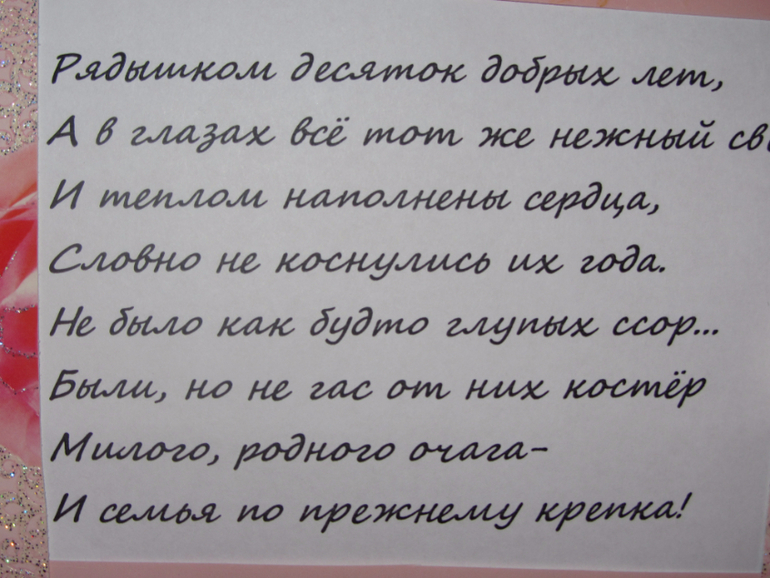 Рядышком десяток добрых лет,
А в глазах всё тот же нежный
И теплом наполнены сердца,
Словно не коснулись их года.
Не было как будто глупых ссор...
Были, но не гас от них костёр
Милого, родного очага-
И семья по прежнему крепка!